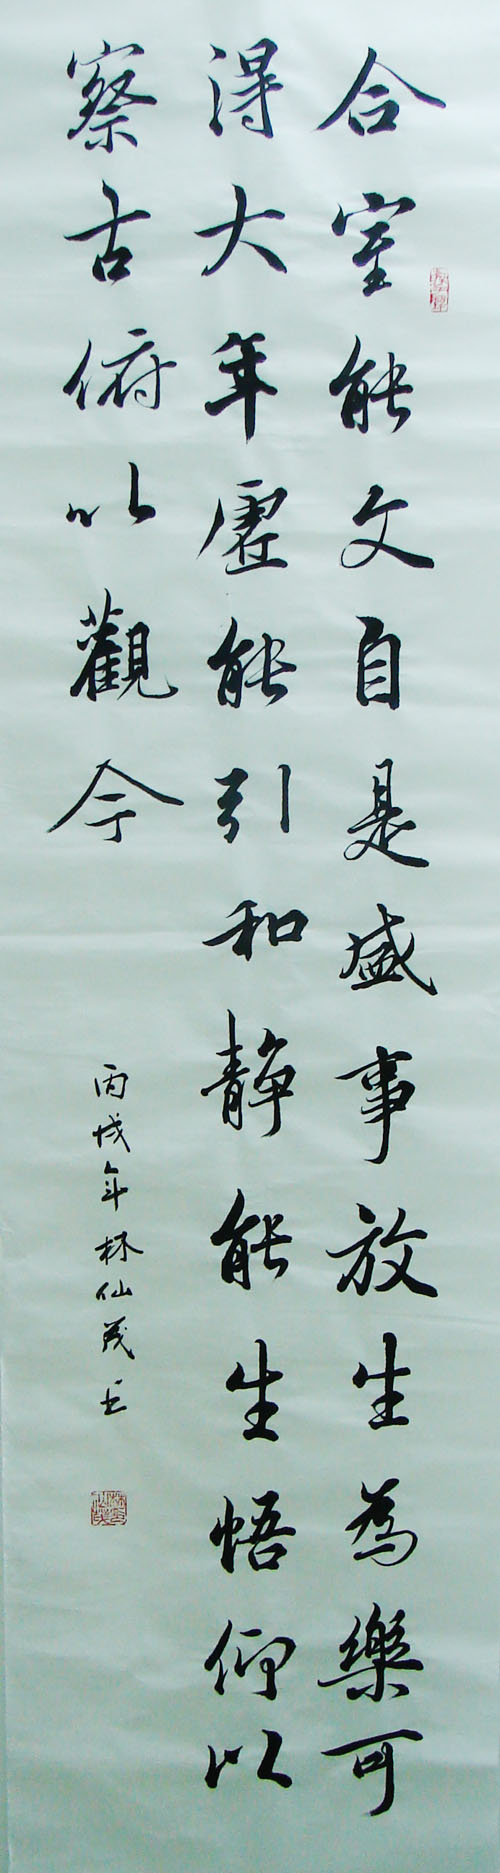 合室能文自是盛事放生為樂可
得大年虛能引和静能生悟仰以
察古俯以觀今
丙戌年林仙茂书